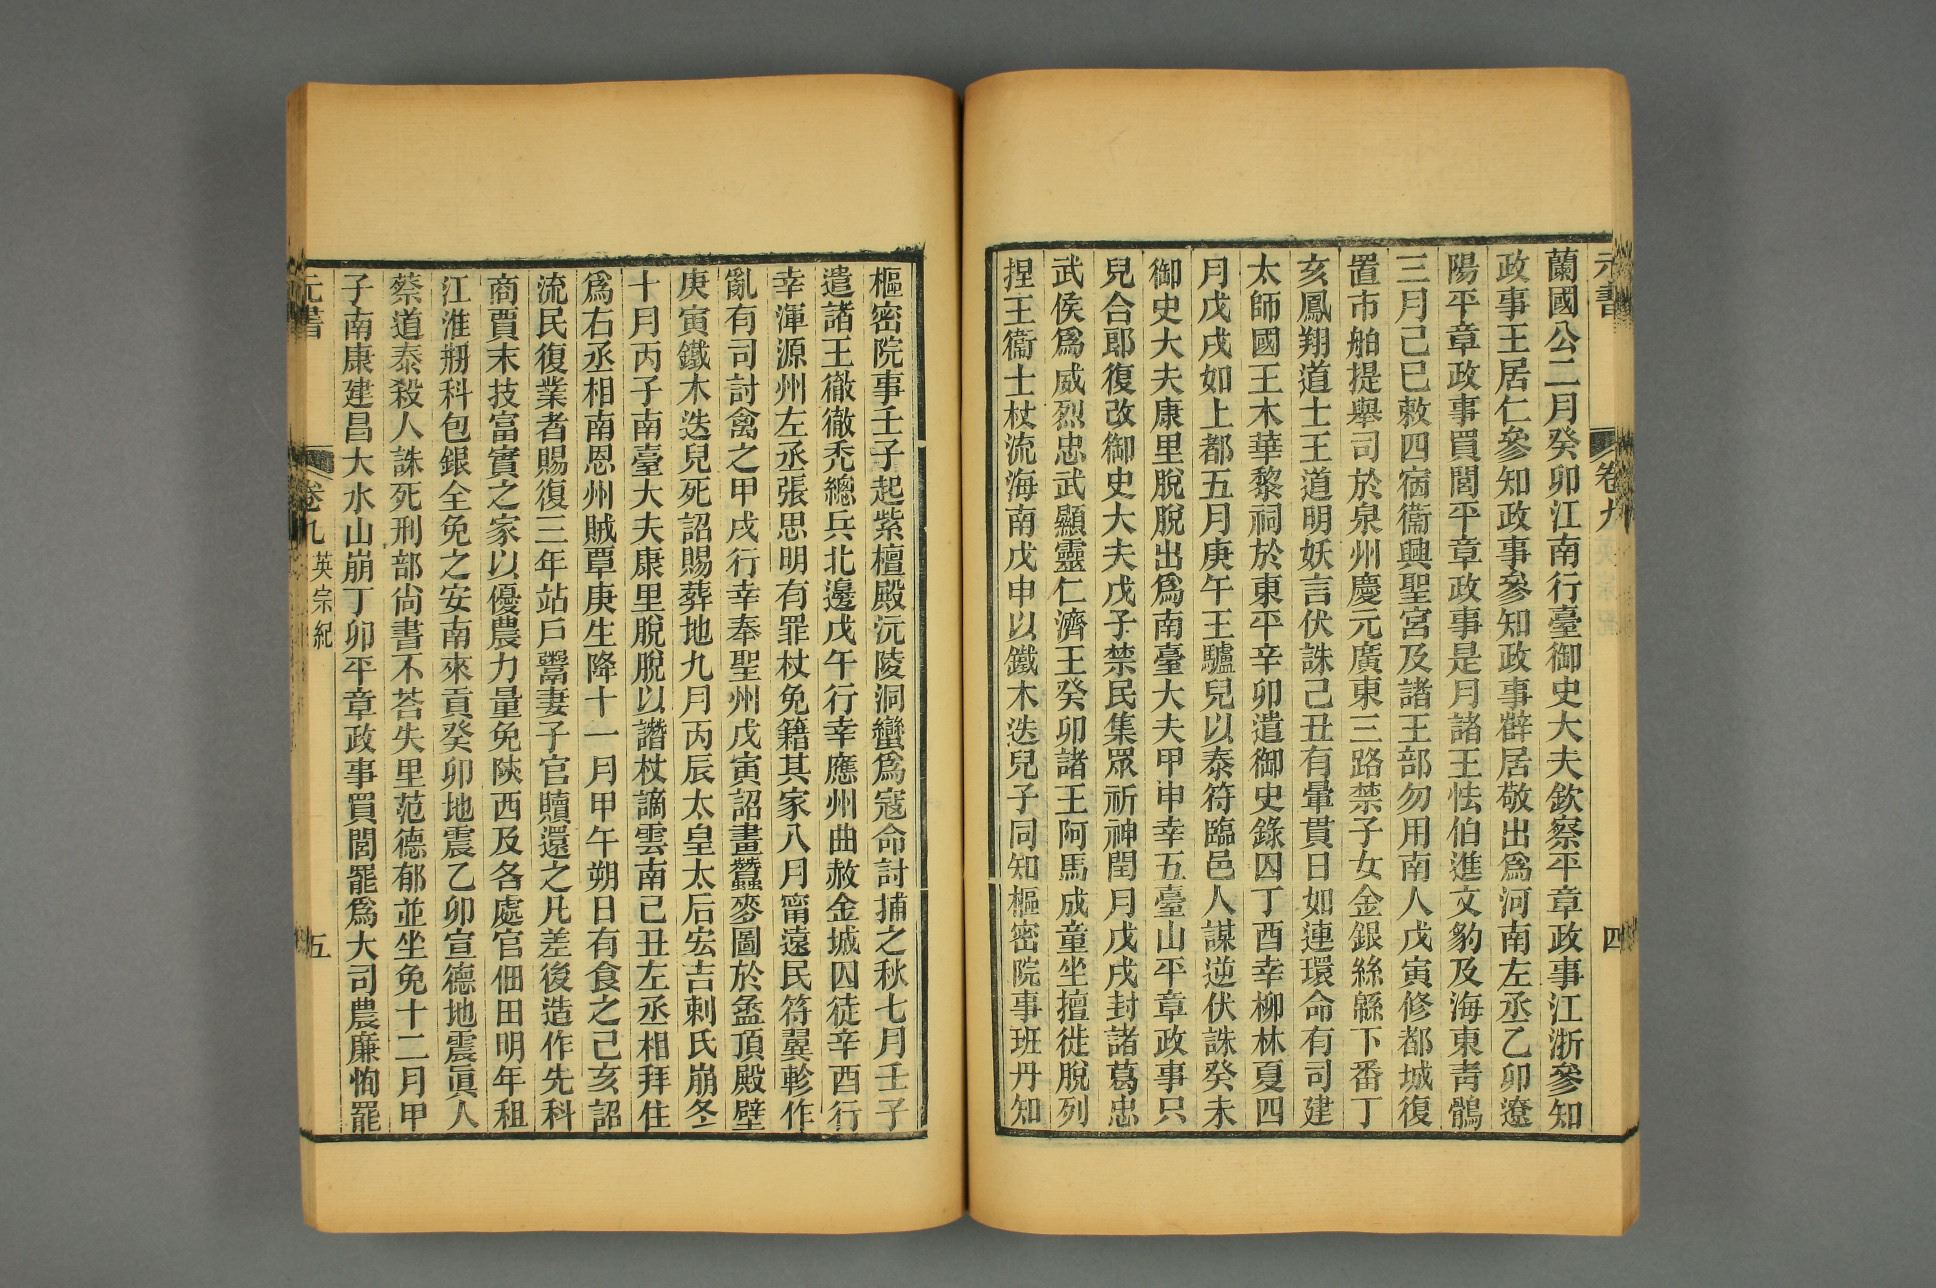 元書 卷九 四
蘭國公二月癸卯江南行臺御史大夫欽察平章政事江浙參知
政事王居仁參知政事參知政事薜居敬出爲河南左丞乙卯遼
陽平章政事買閭平章政事是月諸王怯伯進文豹及海東青鶻
三月己巳敕四宿衞興聖宮及諸王部勿用南人戊寅修都城復
置市舶提舉司於泉州慶元廣東三路禁子女金銀絲緜下番丁
亥鳳翔道士王道明妖言伏誅己丑有暈貫日如連環命有司建
太師國王木華黎祠於東平辛卯遣御史錄囚丁酉幸柳林夏四
月戊戌如上都五月庚午王驢兒以泰符臨邑人謀逆伏誅癸未
御史大夫康里脫脫出爲南臺大夫甲申幸五臺山平章政事只
兒合郎復改御史大夫戊子禁民集眾祈神閏月戊戌封諸葛忠
武侯爲威烈忠武顯靈仁濟王癸卯諸王阿馬成童坐擅徙脫列
捏王衞士杖流海南戊申以鐵木迭兒子同知樞密院事班丹知
樞密院事壬子起紫檀殿沅陵洞蠻爲寇命討捕之秋七月壬子
遣諸王徹徹禿總兵北邊戊午行幸應州曲赦金城囚徒辛酉行
幸渾源州左丞張思明有罪杖免籍其家八月甯遠民符翼軫作
亂有司討禽之甲戌行幸奉聖州戊寅詔畫蠶麥圖於盝頂殿壁
庚寅鐵木迭兒死詔賜葬地九月丙辰太皇太后宏吉剌氏崩冬
十月丙子南臺大夫康里脫脫以譖杖謫雲南己丑左丞相拜住
爲右丞相南恩州賊覃庚生降十一月甲午朔日有食之己亥詔
流民復業者賜復三年站戶鬻妻子官贖還之凡差後造作先科
商賈末技富實之家以優農力量免陝西及各處官佃田明年租
江淮剏科包銀全免之安南來貢癸卯地震乙卯宣德地震眞人
蔡道泰殺人誅死刑部尚書不荅失里范德郁並坐免十二月甲
子南康建昌大水山崩丁卯平章政事買閭罷爲大司農廉恂罷
元書 卷九 英宗紀 五